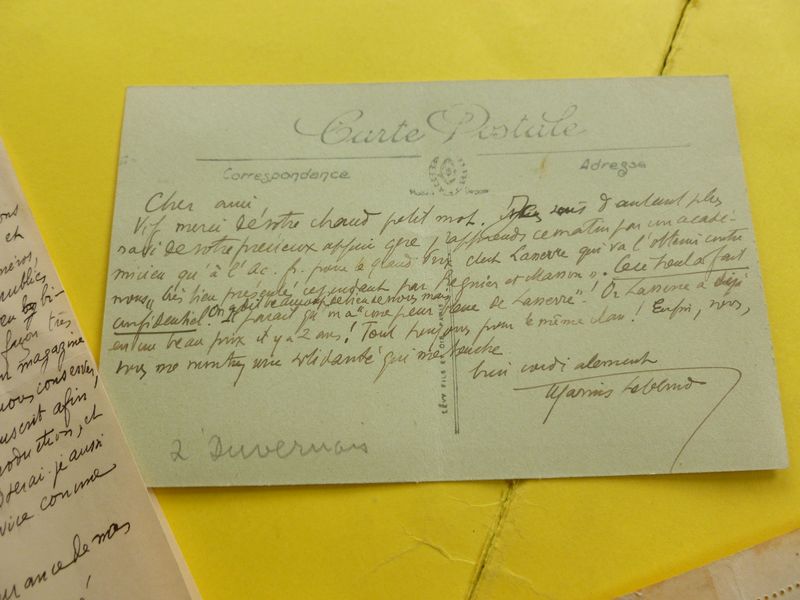 Carte Postale
Correspondance
Adresse
Cher ami
Vif merci de votre chaud petit mot. suis d'autant plus
ravi de votre précieux appui que j'apprends ce matin par un acadé-
micien qu'à l'Ac. fr. pour le grand prix c'est Lasserre qui va l'obtenir contre
nous, "très bien présenté" cependant par Régnier et Masson". Ceci tout à fait
confidentiel. On a dit beaucoup de bien de nous mais
Il paraît qu'on a "une peur bleue de Lasserre"! Or Lasserre a déjà
eu un beau prix il y a 2 ans! Tout toujours pour le même clan! Enfin, vous,
vous me montrez une solidarité qui me touche
bien cordialement
Marius Leblond
LÉVY FILS ET CIE
à Duvernois
ous
et
méros,
publics
bi-
façon très
un magazine
nous conserver
uscrit afin,
roduction, et
oserai-je aussi
vice comme
urance de mes